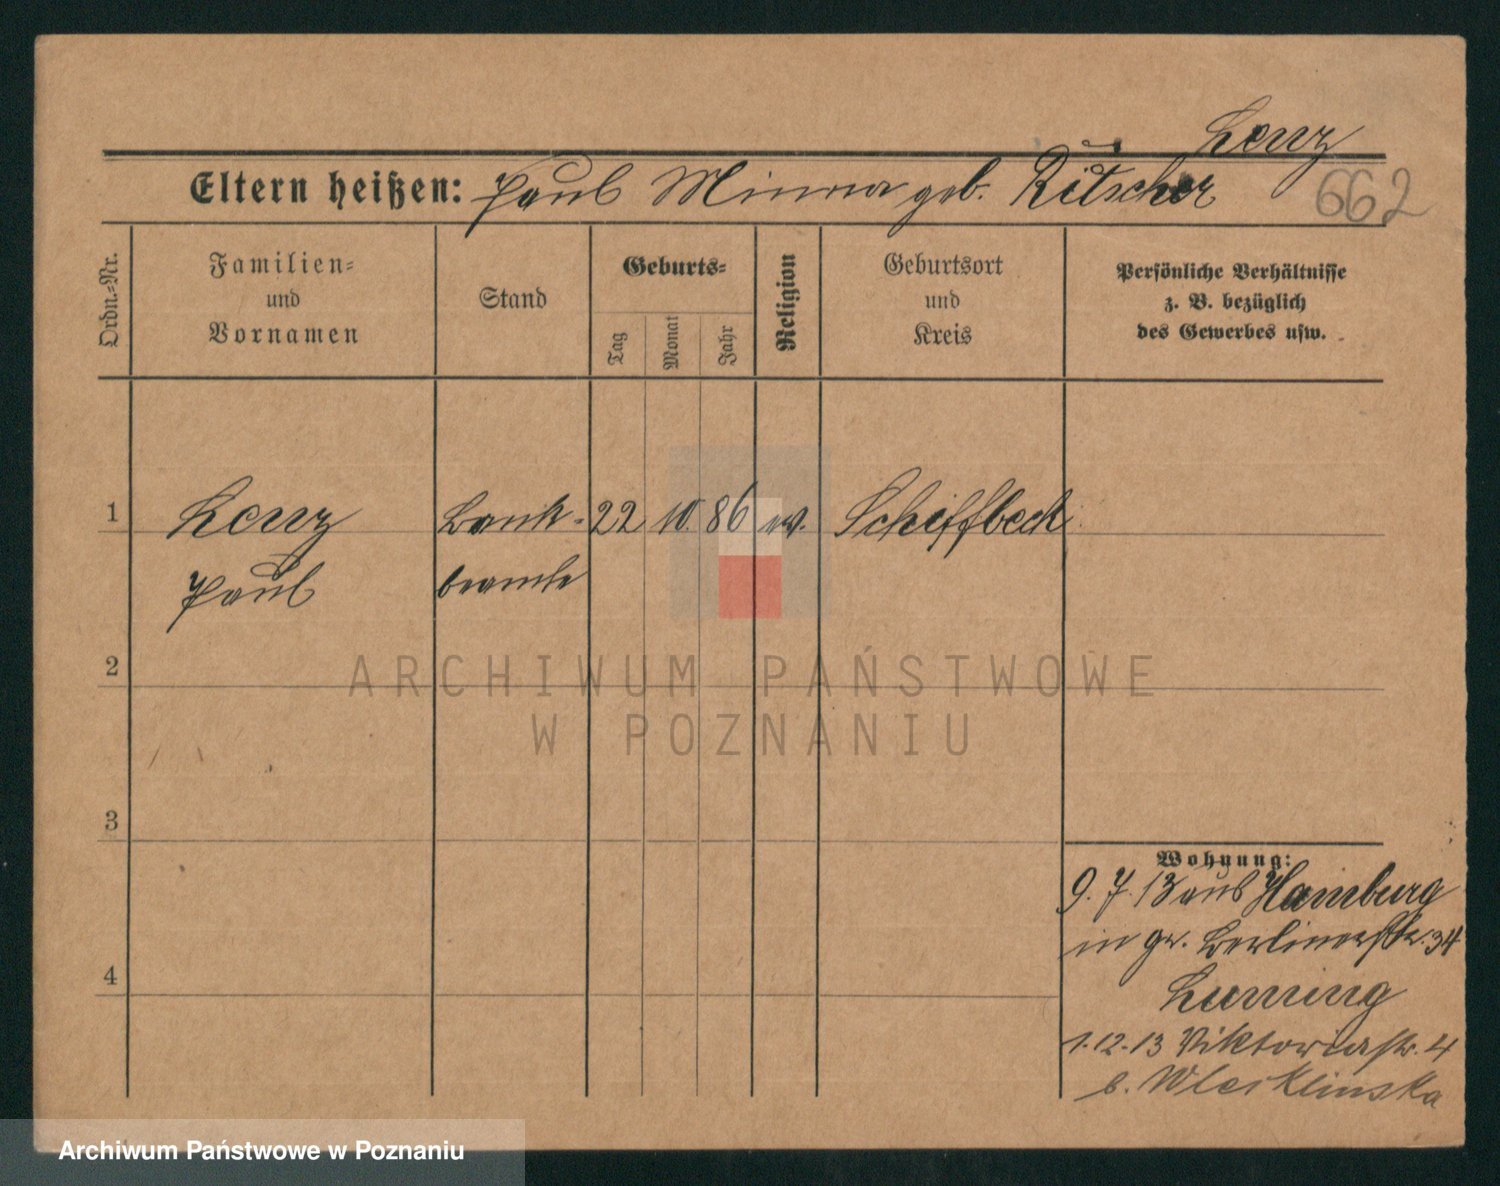 Lenz
Eltern heißen: Paul Minna geb. Rütscher
662
Ordn.-Nr.
Familien-
und
Vornamen
Stand
Geburts-
Tag
Monat
Jahr
Religion
Geburtsort
und
Kreis
Persönliche Verhältnisse
z. B. bezüglich
des Gewerbes usw.
1
Lenz
Bank-
22 10. 86 ev. Schiffbeck
Paul
beamte
ARCHIWUM PAŃSTWOWE
W POZNANIU
2
3
4
Wohnung:
9. 7. 13 aus Hamburg
in gr. Berlinerstr. 34
1.12.13 Viktoriastr. 4
b.
Archiwum Państwowe w Poznaniu